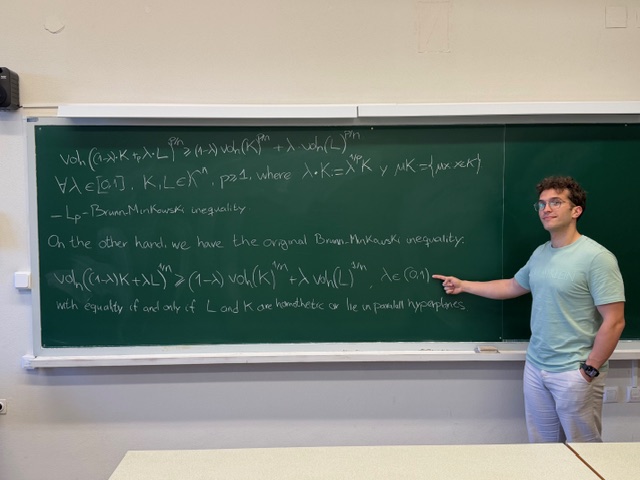 vol_n((1-λ)·K +_p λ·L)^{p/n} ≥ (1-λ) vol_n(K)^{p/n} + λ·vol_n(L)^{p/n}
∀ λ ∈ [0,1], K, L ∈ K^n, p≥1, where λ·K := λ^{1/p} K y μK = {μx: x∈K}
- Lp-Brunn-Minkowski inequality
On the other hand, we have the original Brunn-Minkowski inequality:
vol_n((1-λ)K + λL)^{1/n} ≥ (1-λ) vol_n(K)^{1/n} + λ vol_n(L)^{1/n}, λ∈(0,1)
with equality if and only if L and K are homothetic or lie in parallel hyperplanes